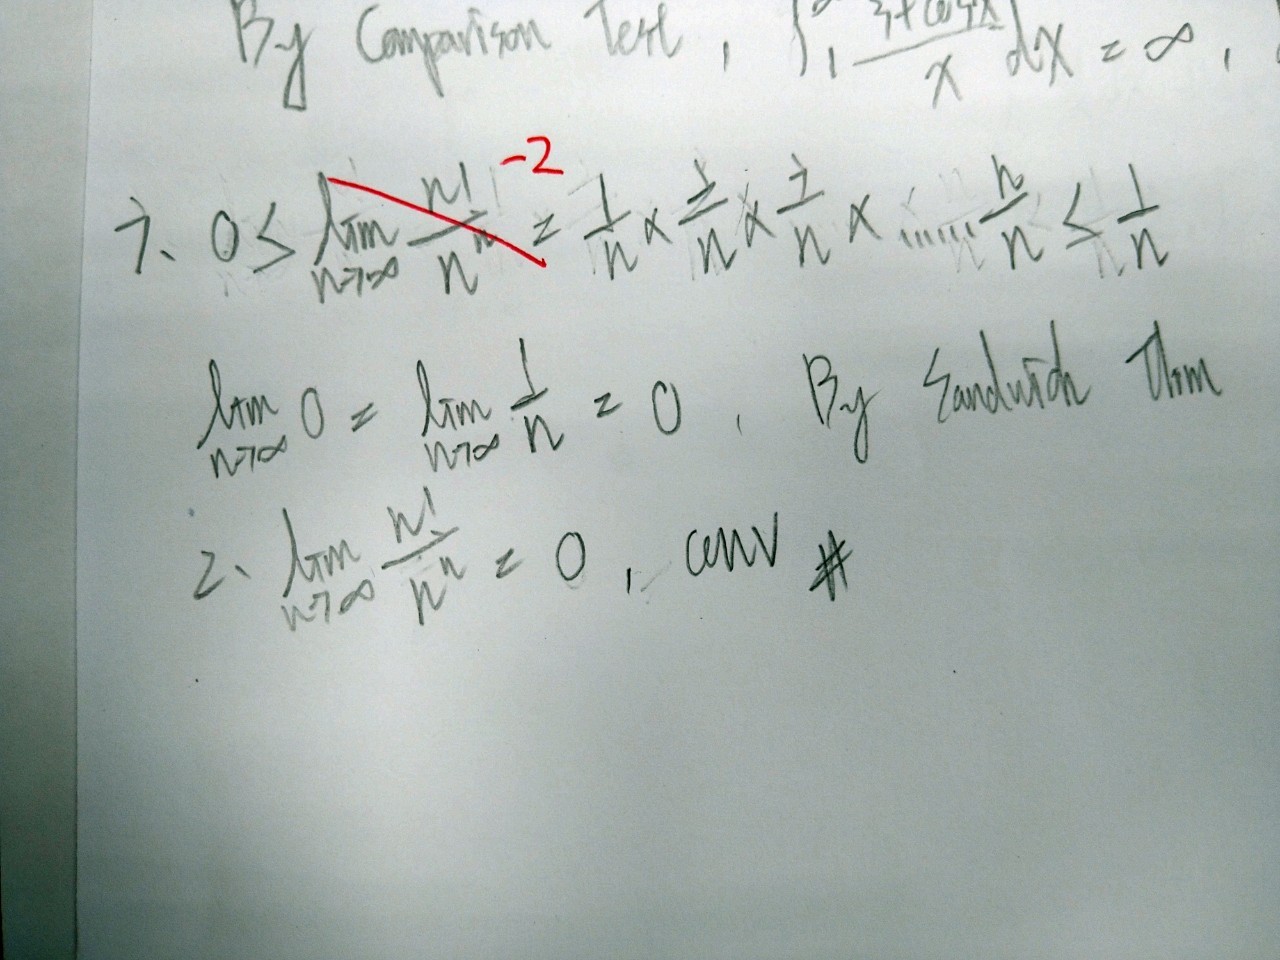 By Comparison Test, ∫₁ (3+cos4x)/x dx = ∞,
-2
7. 0 ≤ lim n→∞ n!/nⁿ = 1/n × 2/n × 3/n × ...... n/n ≤ 1/n
lim n→∞ 0 = lim n→∞ 1/n = 0, By Sandwich Thm
∴ lim n→∞ n!/nⁿ = 0, conv #